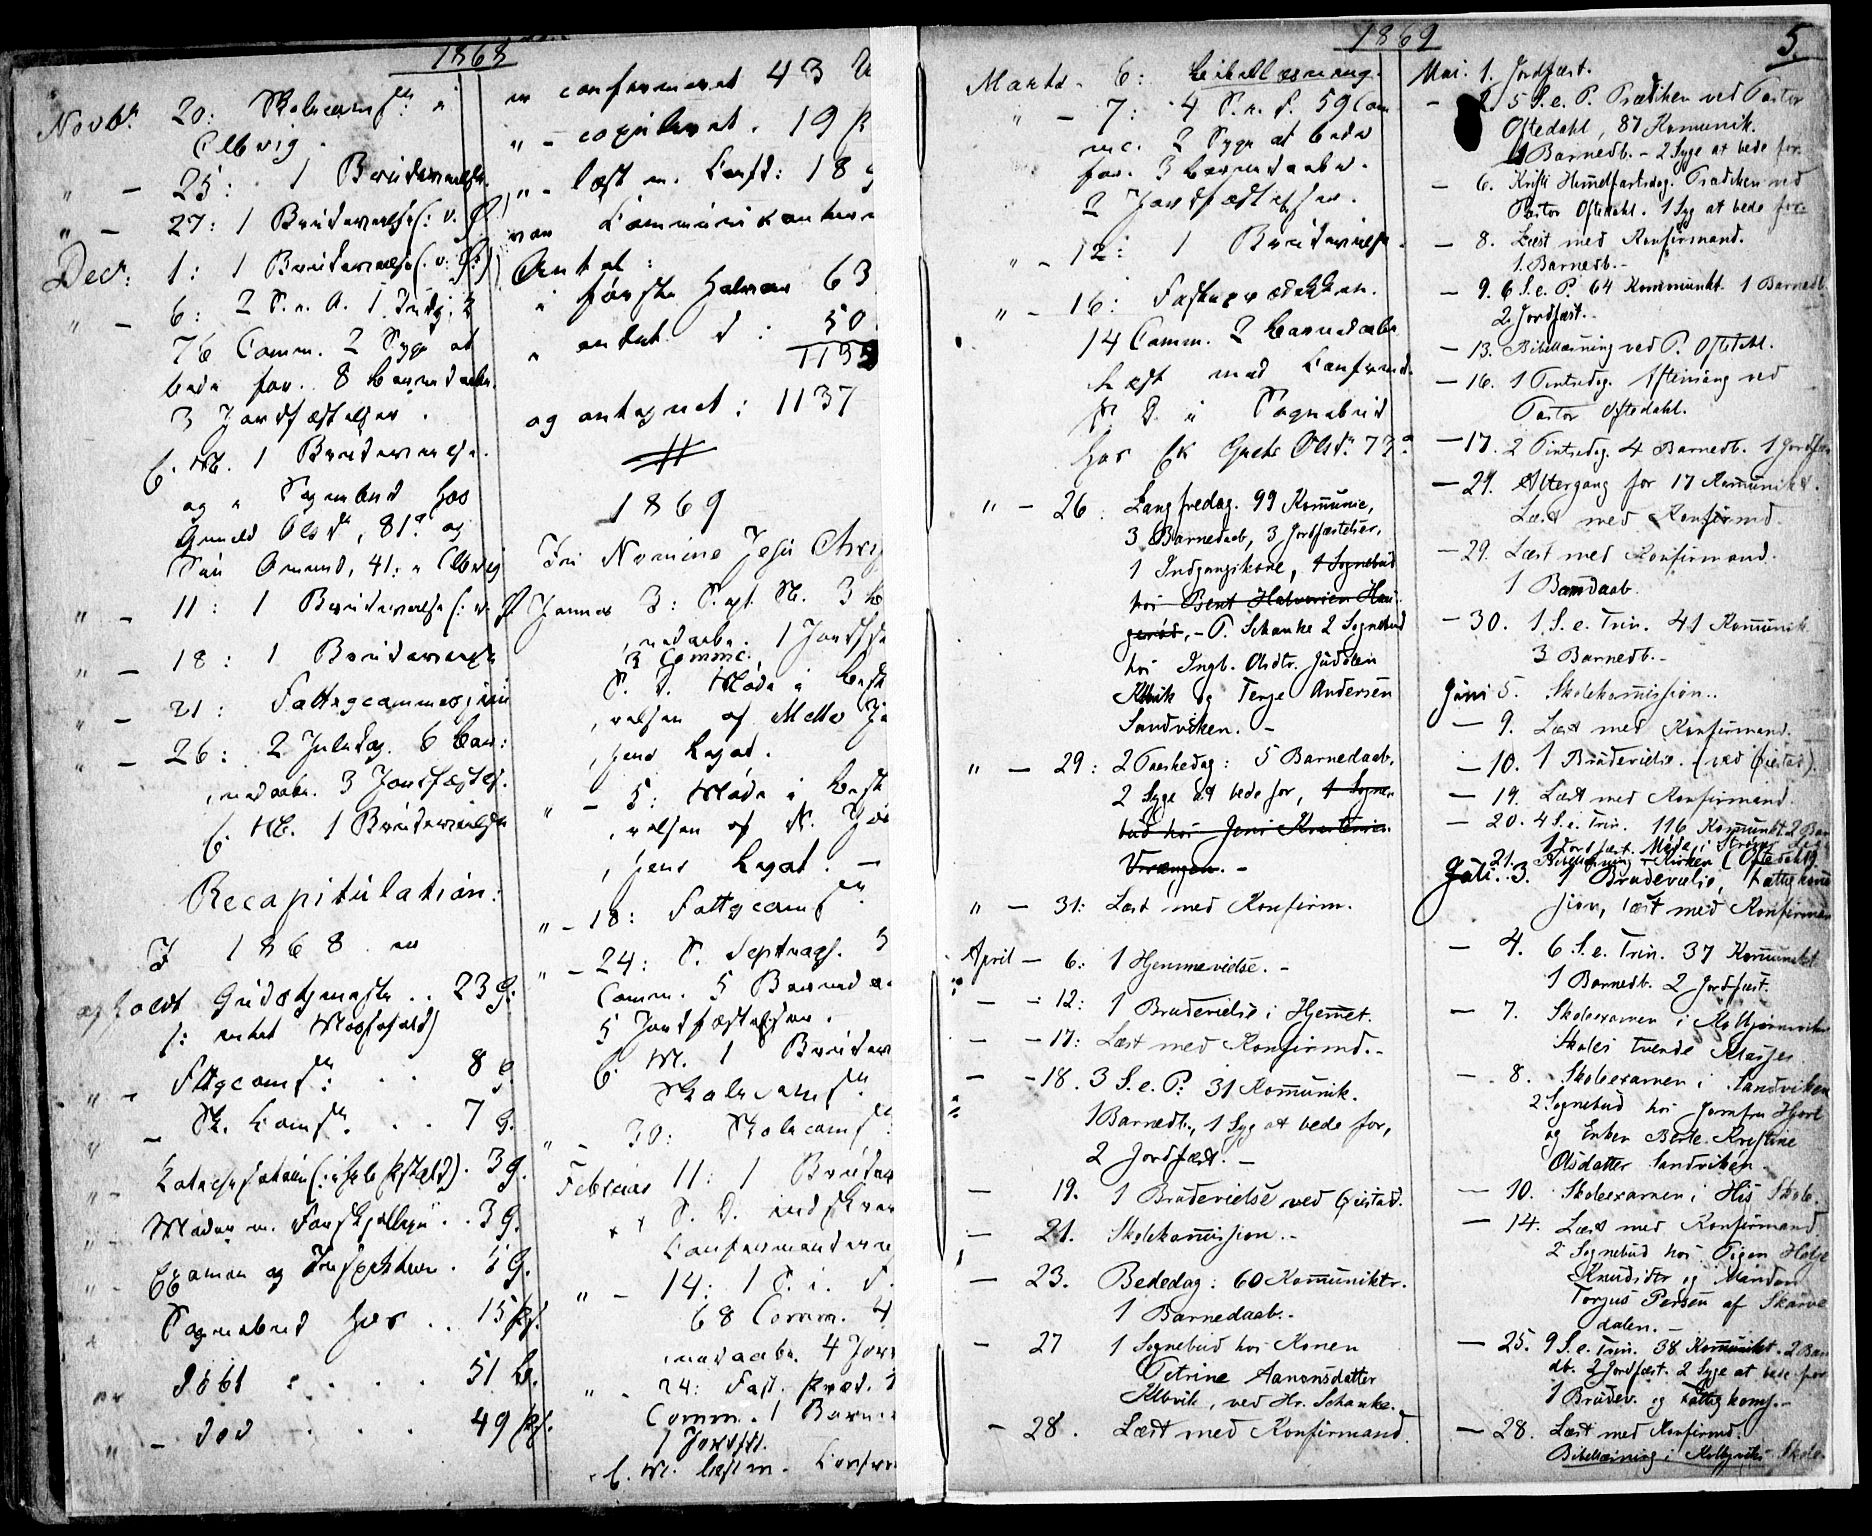 1868
Novbr. 20: Skolecomsn. i
Elbvig.
" - 25: 1 Brudevielse.
" - 27: 1 Brudevielse (: v. G.
Decr. 1: 1 Brudevielse (: v. G:)
" - 6: 2 S. i A. 1 Indg: K
76 Comm. 2 Syge at
bede for. 8 Barnedaabe.
3 Jordfæstelser.
E. M. 1 Brudevielse.
og " Sognebud hos
Gunild Olsd., 81. og
Amund, 41: i Elbvig
" - 11: 1 Brudevielse (: v. G
" - 18: 1 Brudevielse
" - 21: Fattigcommission
" - 26: 2 Juledag. 6 Bar:
nedaabe. 3 Jordfæstels.
E. M. 1 Brudevielse
Recapitulation:
I 1868 er
afholdt Gudstjeneste . . 23 G.
" - Fttgcomsn: . . 8 G.
" - Sk. Comsn. . . 7 G.
" - Katechisation 3 G.
" - Møder m. Forskjellige . . 3 G.
" - Examen og Inspektion . 5 G.
Sognebud hos . . 15 Ps.
er døbt . . . . 51 B.
" - død . . . 49 Ps.
er confirmeret 43 U
" - copuleret . 19 P
" - læst m. Confd: 18 g
var Communicanternes
Antal:
i første Halvaar 63
" andet d: 50
113
og antegnet: 1137
1869
In Nomine Jesu Chri
Januar 3: S. e. N. 3 B
nedaabe. 1 Jordfæ
3 Comme.
S. D. Møde i Best
relsen af Mette
sens Legat.
" - 5: Møde i Best
relsen af N.
sens Legat. -
" - 18: Fattigcomsn
" - 24: S. Septuags. 3
Comm. 5 Barneda
5 Jordfæstelser.
E. M. 1 Brudev
Skolecomsn.
" - 30: Skolecomsn
Februar 11: 1 Brudev
S. D. indskrev
Confirmanderne
" - 14: 1 S. i F.
68 Comm. 4
nedaabe. 4 Jor
" - 24: Fast. Præd.
Comm. 1 Barne
1 Jordft.
E. M. læst m. Confir
1869
5.
Marts. 6: Bibellæsning.
" - 7: 4 S. i F. 59 Com
me. 2 Syge at bede
for. 3 Barnedaabe.
2 Jordfæstelser.
" - 12: 1 Brudevielse.
" - 16: Fasteprædikken.
14 Comm. 2 Barnedaabe
Læst med Confirmd.
S. D. i Sognebud
hos Ek Grethe Olsd. 73
" - 26. Langfredag. 99 Komunic,
3 Barnedaab, 3 Jordfæstelser,
1 Indgangskone, 1 Sognebud
hos Bent Halvorsen Hau
gerød, - P. Schanke 2 Sognebud
hos Ingb. Olsdtr. Jüdölen
Klbvik og Terje Andersen
Sandviken. -
" - 29: 2 Paaskedag: 5 Barnedaab,
2 Syge at bede for, 1 Sogne-
bud hos Jens Knutsen
Vrængen. -
" - 31: Læst med Konfirm.
April - 6: 1 Hjemmevielse. -
- - 12: 1 Brudevielse i Hjemet.
- - 17: Læst med Konfirmd. -
- - 18. 3 S. e. P: 31 Komunik.
1 Barnedb., 1 Syg at bede for,
2 Jordfæst. -
- 19. 1 Brudevielse ved Gjestad.
- 21. Skolekomission. -
- 23. Bededag: 60 Komuniktr.
1 Barnedaab. -
- 27 1 Sognebud hos Konen
Petrine Aanonsdatter
Klbvik, ved Hr. Schanke. -
- 28. Læst med Konfirmand.
Mai. 1. Jordfæst.
- 2. 5 S. e. P. Prædiken ved Pastor
Oftedahl, 87 Komunik.
1 Barnedb. - 2 Syge at bede for.
- 6. Kristi Himelfartsdag. Prædiken ved
Pastor Oftedahl. 1 Syg at bede for.
- 8. Læst med Konfirmand.
1 Barnedb. -
- 9. 6 S. e. P. 64 Komunikt. 1 Barnedb.
2 Jordfæst. -
- 13. Bibellæsning ved P. Oftedahl.
- 16. 1 Pintsedag. Aftensang ved
Pastor Oftedahl.
- 17. 2 Pintsedag. 4 Barnedb. 1 Jordfæs
- 21. Altergang for 17 Komunikt.
Læst med Konfirmd
- 29. Læst med Konfirmand.
1 Barndaab.
- 30. 1 S. e. Trin. 41 Komunik.
3 Barnedb. -
Juni 5. Skolekomission..
- 9. Læst med Konfirmand.
- 10. 1 Brudevielse. (ved Gjestad).
- 19. Læst med Konfirmand.
- 20. 4 S. e. Trin. 116 Komunikt. 2 Bar
1 Jordfæst. Møde i Strøms
21. Bibellæsning i Kirken (Oftedahl).
Juli. 3. 1 Brudevielse, Fattigkomis
sion, læst med Konfirman
- 4. 6 S. e. Trin. 37 Komunikt
1 Barnedb. 2 Jordfæst.
- 7. Skoleexamen i
Skoles tvende Klasser
- 8. Skoleexamen i Sandviken
2 Sognebud hos Jomfru Hjort
og Enken Berte Kristine
Olsdatter Sandviken.
- 10. Skoleexamen i His Skole.
- 14. Læst med Konfirmand
2 Sognebud hos Pigen Helje
Knudsdtr og Manden
Torjus Persen af Skarve
dalen. -
- 25. 9 S. e. Trin. 38 Komunikt. 2 Bar
db. 2 Jordfæst. 2 Syge at bede for
1 Brudev. og Fattigkoms. -
- 28. Læst med Konfirmd.
Bibellæsning i Skole